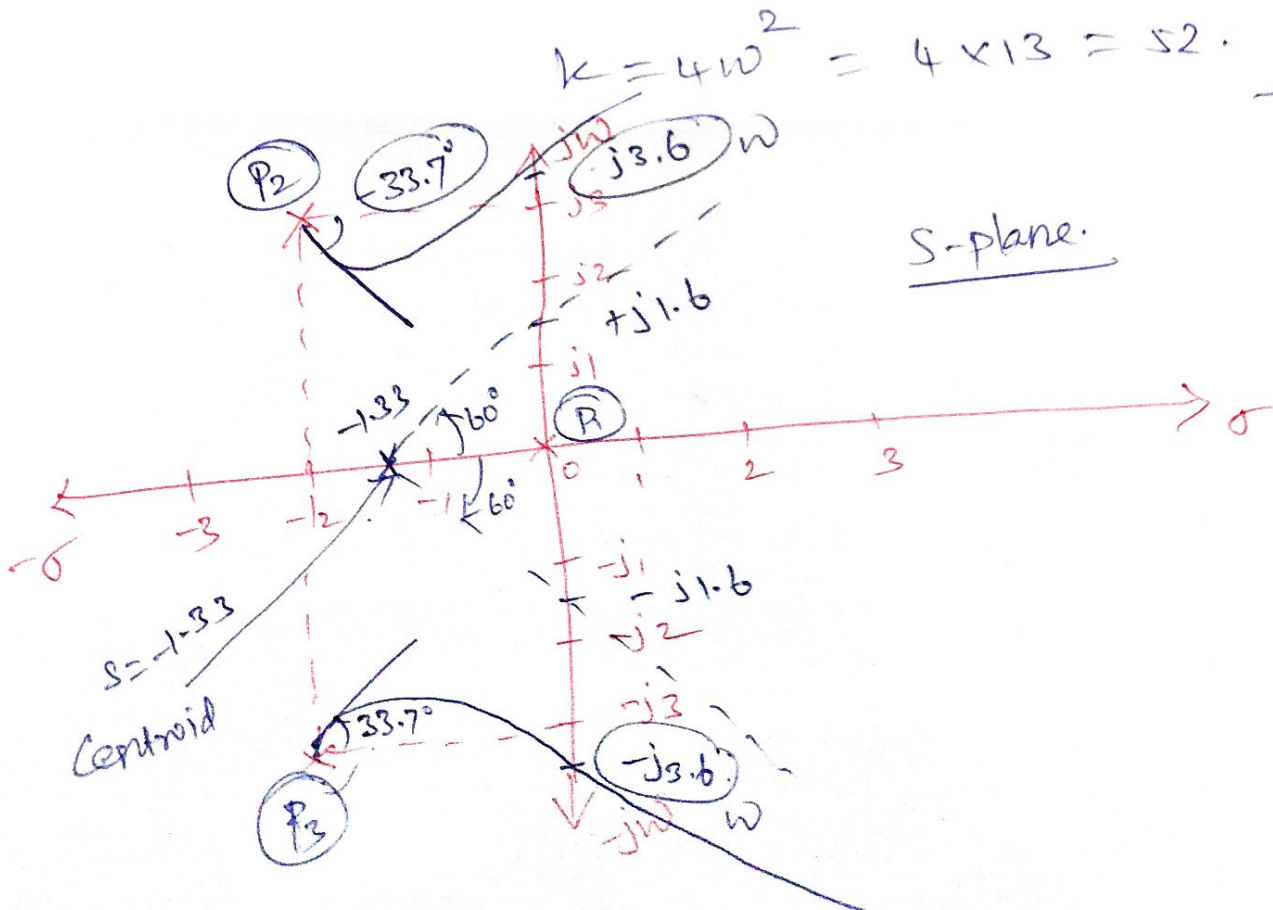 k = 4ω² = 4 × 13 = 52.
P2
-33.7°
jω
j3.6
ω
j3
S-plane.
j2
+j1.6
j1
-1.33
60°
P1
σ
-3
-2
-1
0
1
2
3
60°
-σ
-j1
-j1.6
-j2
S=-1.33
Centroid
-j3
33.7°
-j3.6
ω
-jω
P3